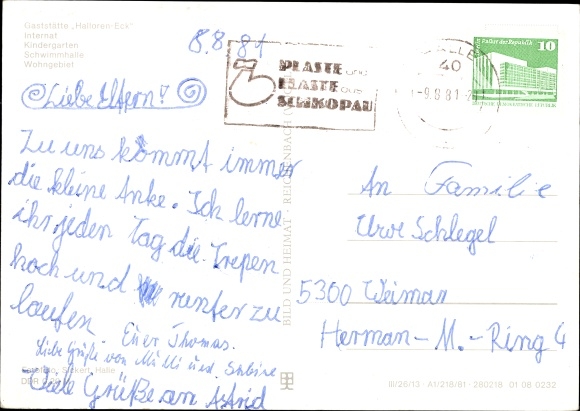 Gaststätte „Halloren-Eck"
Internat
Kindergarten
Schwimmhalle
Wohngebiet
8.8.81
Liebe Eltern!
Zu uns kommt immer
die kleine Anke. Ich lerne
ihr jeden Tag die Trepen
hoch und runter zu
laufen.
Euer Thomas.
Liebe Grüße von Mutti und Sabine
Viele Grüße an Astrid
Foto: Sickert, Halle
DDR
BILD UND HEIMAT · REICHENBACH (V
PLASTE und
ELASTE aus
SCHKOPAU
HALLE
40
-9.8.81
Palast der Republik
10
DEUTSCHE DEMOKRATISCHE REPUBLIK
An Familie
Uwe Schlegel
5300 Weimar
Herman-M.-Ring 4
III/26/13 A1/218/81 280218 01 08 0232